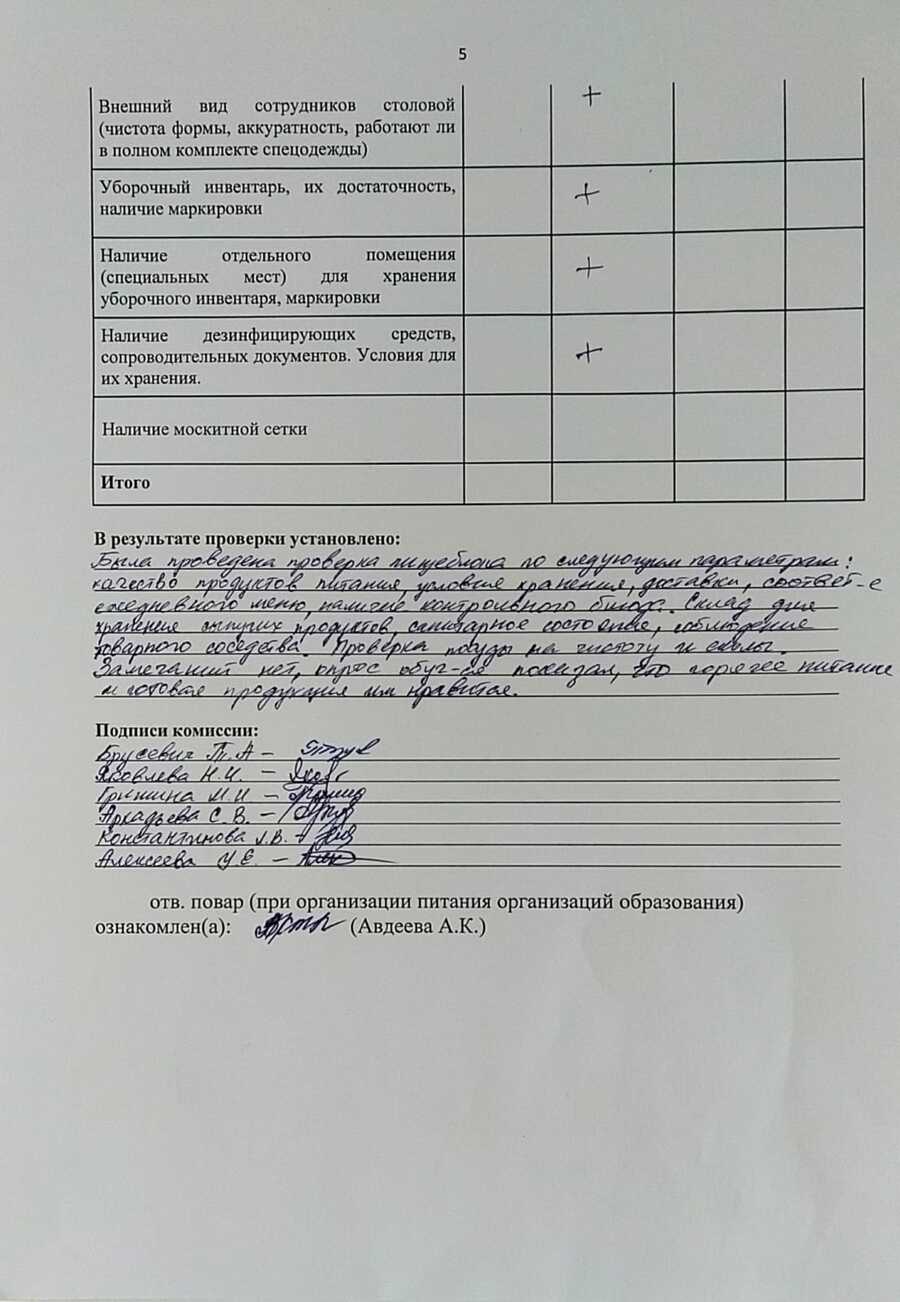 5
Внешний вид сотрудников столовой +
(чистота формы, аккуратность, работают ли
в полном комплекте спецодежды)
Уборочный инвентарь, их достаточность, +
наличие маркировки
Наличие отдельного помещения
(специальных мест) для хранения +
уборочного инвентаря, маркировки
Наличие дезинфицирующих средств,
сопроводительных документов. Условия для +
их хранения.
Наличие москитной сетки
Итого
В результате проверки установлено:
Была проведена проверка пищеблока по следующим параметрам:
качество продуктов питания, условие хранения, доставки, соответ-е
ежедневного меню, наличие контрольного блюда. Склад для
хранения сыпучих продуктов, санитарное состояние, соблюдение
товарного соседства. Проверка посуды на чистоту и сколы.
Замечаний нет, опрос обуч-ся показал, что горячее питание
и готовая продукция им нравится.
Подписи комиссии:
Брусевич Т.А –
Яковлева Н.И. –
Гришина М.И –
Аркадьева С.В. –
Константинова Л.В. –
Алексеева У.Е. –
отв. повар (при организации питания организаций образования)
ознакомлен(а): (Авдеева А.К.)